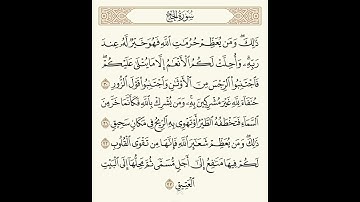 سُورَةُ الحَجِّ
ذَٰلِكَۖ وَمَن يُعَظِّمْ حُرُمَٰتِ ٱللَّهِ فَهُوَ خَيْرٌ لَّهُۥ عِندَ
رَبِّهِۦۗ وَأُحِلَّتْ لَكُمُ ٱلْأَنْعَٰمُ إِلَّا مَا يُتْلَىٰ عَلَيْكُمْۖ
فَٱجْتَنِبُوا۟ ٱلرِّجْسَ مِنَ ٱلْأَوْثَٰنِ وَٱجْتَنِبُوا۟ قَوْلَ ٱلزُّورِ ٣٠
حُنَفَآءَ لِلَّهِ غَيْرَ مُشْرِكِينَ بِهِۦۚ وَمَن يُشْرِكْ بِٱللَّهِ فَكَأَنَّمَا خَرَّ مِنَ
ٱلسَّمَآءِ فَتَخْطَفُهُ ٱلطَّيْرُ أَوْ تَهْوِى بِهِ ٱلرِّيحُ فِى مَكَانٍ سَحِيقٍ ٣١
ذَٰلِكَۖ وَمَن يُعَظِّمْ شَعَٰٓئِرَ ٱللَّهِ فَإِنَّهَا مِن تَقْوَى ٱلْقُلُوبِ ٣٢
لَكُمْ فِيهَا مَنَٰفِعُ إِلَىٰٓ أَجَلٍ مُّسَمًّى ثُمَّ مَحِلُّهَآ إِلَى ٱلْبَيْتِ
ٱلْعَتِيقِ ٣٣